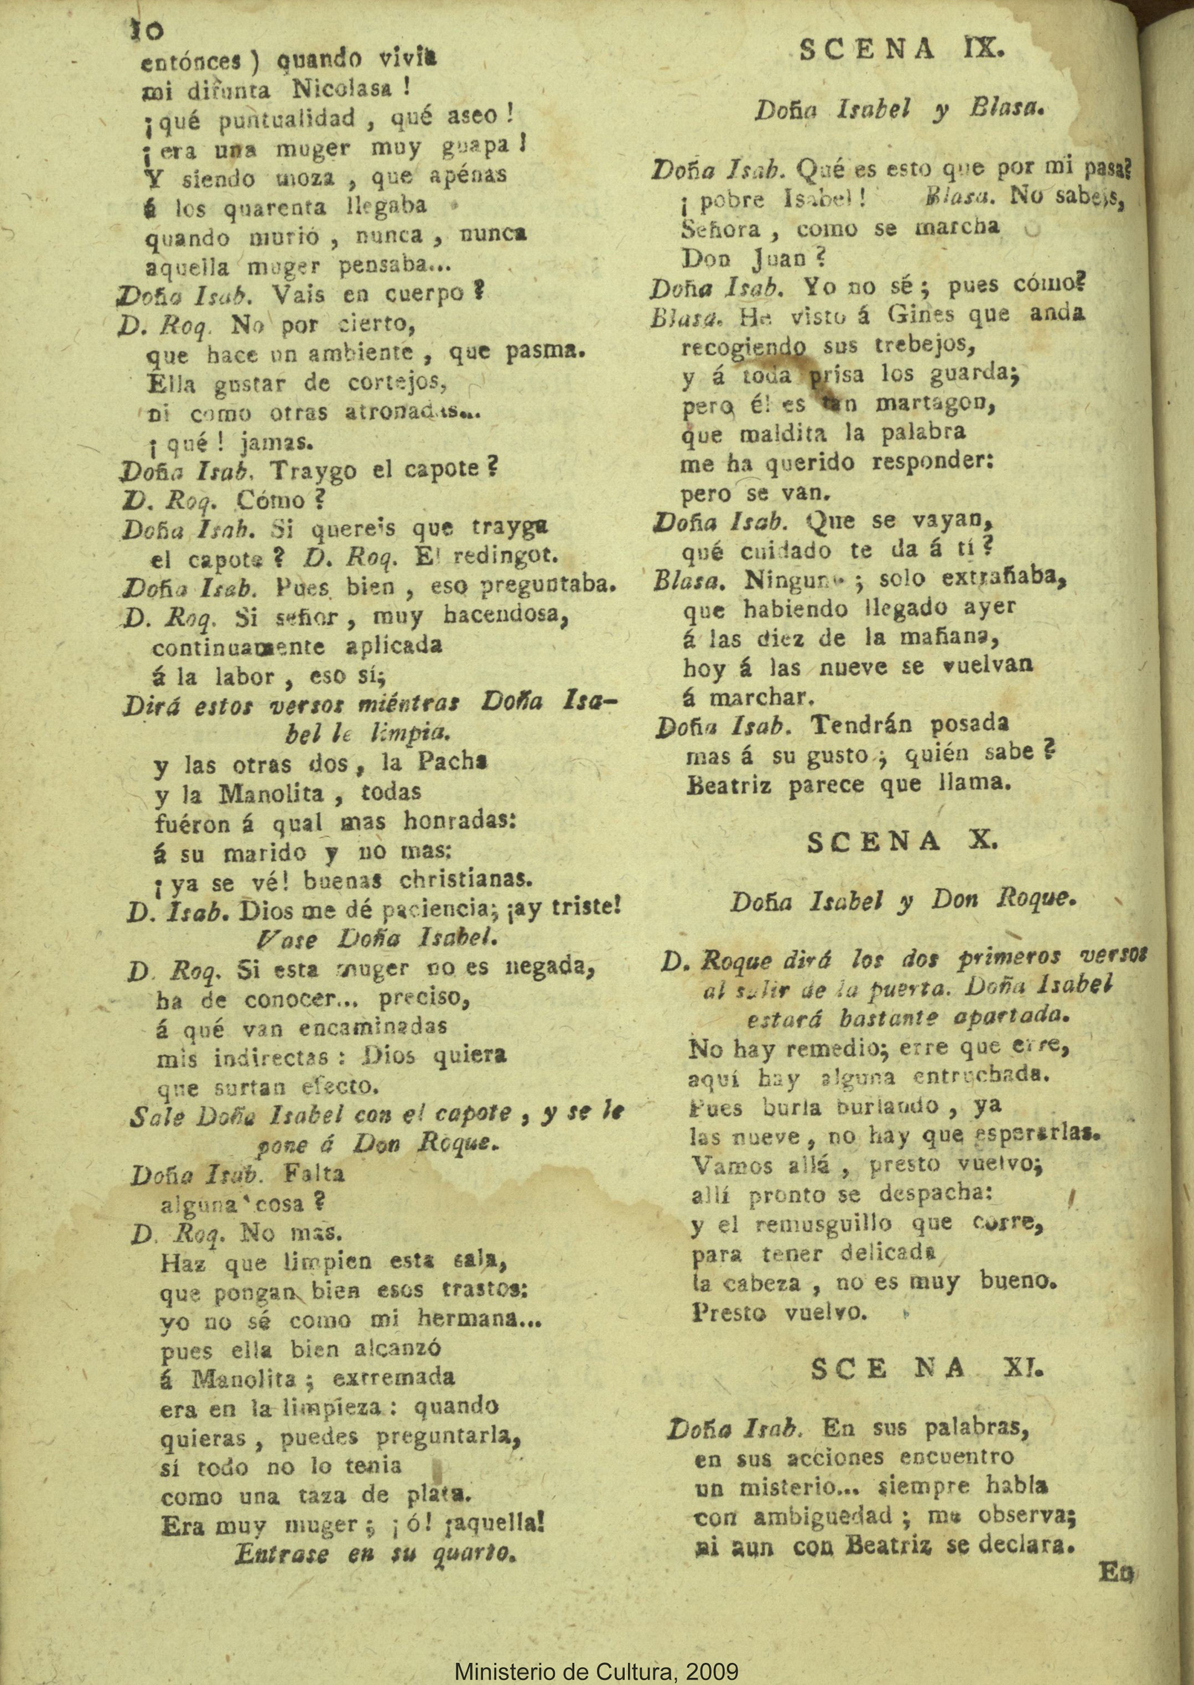 10
entónces) quando vivia
mi difunta Nicolasa!
¡qué puntualidad, qué aseo!
¡era una muger muy guapa!
Y siendo moza, que apénas
á los quarenta llegaba
quando murió, nunca, nunca
aquella muger pensaba...
Doña Isab. Vais en cuerpo?
D. Roq. No por cierto,
que hace un ambiente, que pasma.
Ella gustar de cortejos,
ni como otras atronadas...
¡qué! jamas.
Doña Isab. Traygo el capote?
D. Roq. Cómo?
Doña Isab. Si quereis que trayga
el capote? D. Roq. El redingot.
Doña Isab. Pues bien, eso preguntaba.
D. Roq. Si señor, muy hacendosa,
continuamente aplicada
á la labor, eso sí;
Dirá estos versos miéntras Doña Isa-
bel le limpia.
y las otras dos, la Pacha
y la Manolita, todas
fuéron á qual mas honradas:
á su marido y no mas:
¡ya se vé! buenas christianas.
D. Isab. Dios me dé paciencia; ¡ay triste!
Vase Doña Isabel.
D. Roq. Si esta muger no es negada,
ha de conocer... preciso,
á qué van encaminadas
mis indirectas: Dios quiera
que surtan efecto.
Sale Doña Isabel con el capote, y se le
pone á Don Roque.
Doña Isab. Falta
alguna cosa?
D. Roq. No mas.
Haz que limpien esta sala,
que pongan bien esos trastos:
yo no sé como mi hermana...
pues ella bien alcanzó
á Manolita; extremada
era en la limpieza: quando
quieras, puedes preguntarla,
si todo no lo tenia
como una taza de plata.
Era muy muger; ¡ó! ¡aquella!
Entrase en su quarto.
SCENA IX.
Doña Isabel y Blasa.
Doña Isab. Qué es esto que por mi pasa?
¡pobre Isabel! Blasa. No sabeis,
Señora, como se marcha
Don Juan?
Doña Isab. Yo no sé; pues cómo?
Blasa. He visto á Gines que anda
recogiendo sus trebejos,
y á toda prisa los guarda;
pero él es tan martagon,
que maldita la palabra
me ha querido responder:
pero se van.
Doña Isab. Que se vayan,
qué cuidado te da á tí?
Blasa. Ninguno; solo extrañaba,
que habiendo llegado ayer
á las diez de la mañana,
hoy á las nueve se vuelvan
á marchar.
Doña Isab. Tendrán posada
mas á su gusto; quién sabe?
Beatriz parece que llama.
SCENA X.
Doña Isabel y Don Roque.
D. Roque dirá los dos primeros versos
al salir de la puerta. Doña Isabel
estará bastante apartada.
No hay remedio; erre que erre,
aquí hay alguna entruchada.
Pues burla burlando, ya
las nueve, no hay que esperarlas.
Vamos allá, presto vuelvo;
allí pronto se despacha:
y el remusguillo que corre,
para tener delicada
la cabeza, no es muy bueno.
Presto vuelvo.
SCENA XI.
Doña Isab. En sus palabras,
en sus acciones encuentro
un misterio... siempre habla
con ambiguedad; me observa;
ni aun con Beatriz se declara.
En
Ministerio de Cultura, 2009